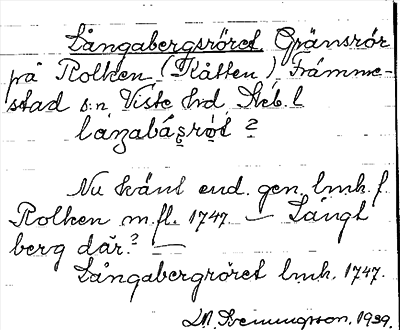 Långabergsröret Gränsrör
på Rolken (Kåtten) Främme-
stad s:n Viste hd Skb. l
långabásrö̀t ?
Nu känt end. gen. lmk. f.
Rolken m.fl. 1747 — Långt
berg där? —
Långabergröret lmk. 1747.
1939.